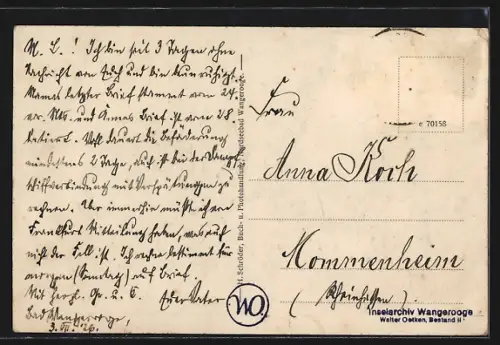 M. L.! Ich bin seit 3 Tagen ohne
Nachricht von Euch und bin beunruhigt.
Mamas letzter Brief stammt vom 24.
vor. Mts. und Emmas Brief ist vom 28.
datiert. Wohl dauert die Beförderung
mindestens 2 Tage, auch ist bei der Dampf-
schiffverbindung mit Verspätungen zu
rechnen. Aber immerhin müßte ich von
Frankfurt Mitteilung haben, was auch
nicht der Fall ist. Ich rechne bestimmt für
morgen (Sonntag) auf Brief.
Mit herzl. Gr. u. K. Euer Vater
Bad Wangerooge,
3. VII. 26.
H. Schröder, Buch- u. Photohandlung, Nordseebad Wangerooge.
e 70158
Frau
Anna Koch
Mommenheim
(Rheinhessen)
WO
Inselarchiv Wangerooge
Walter Oetken, Bestand II